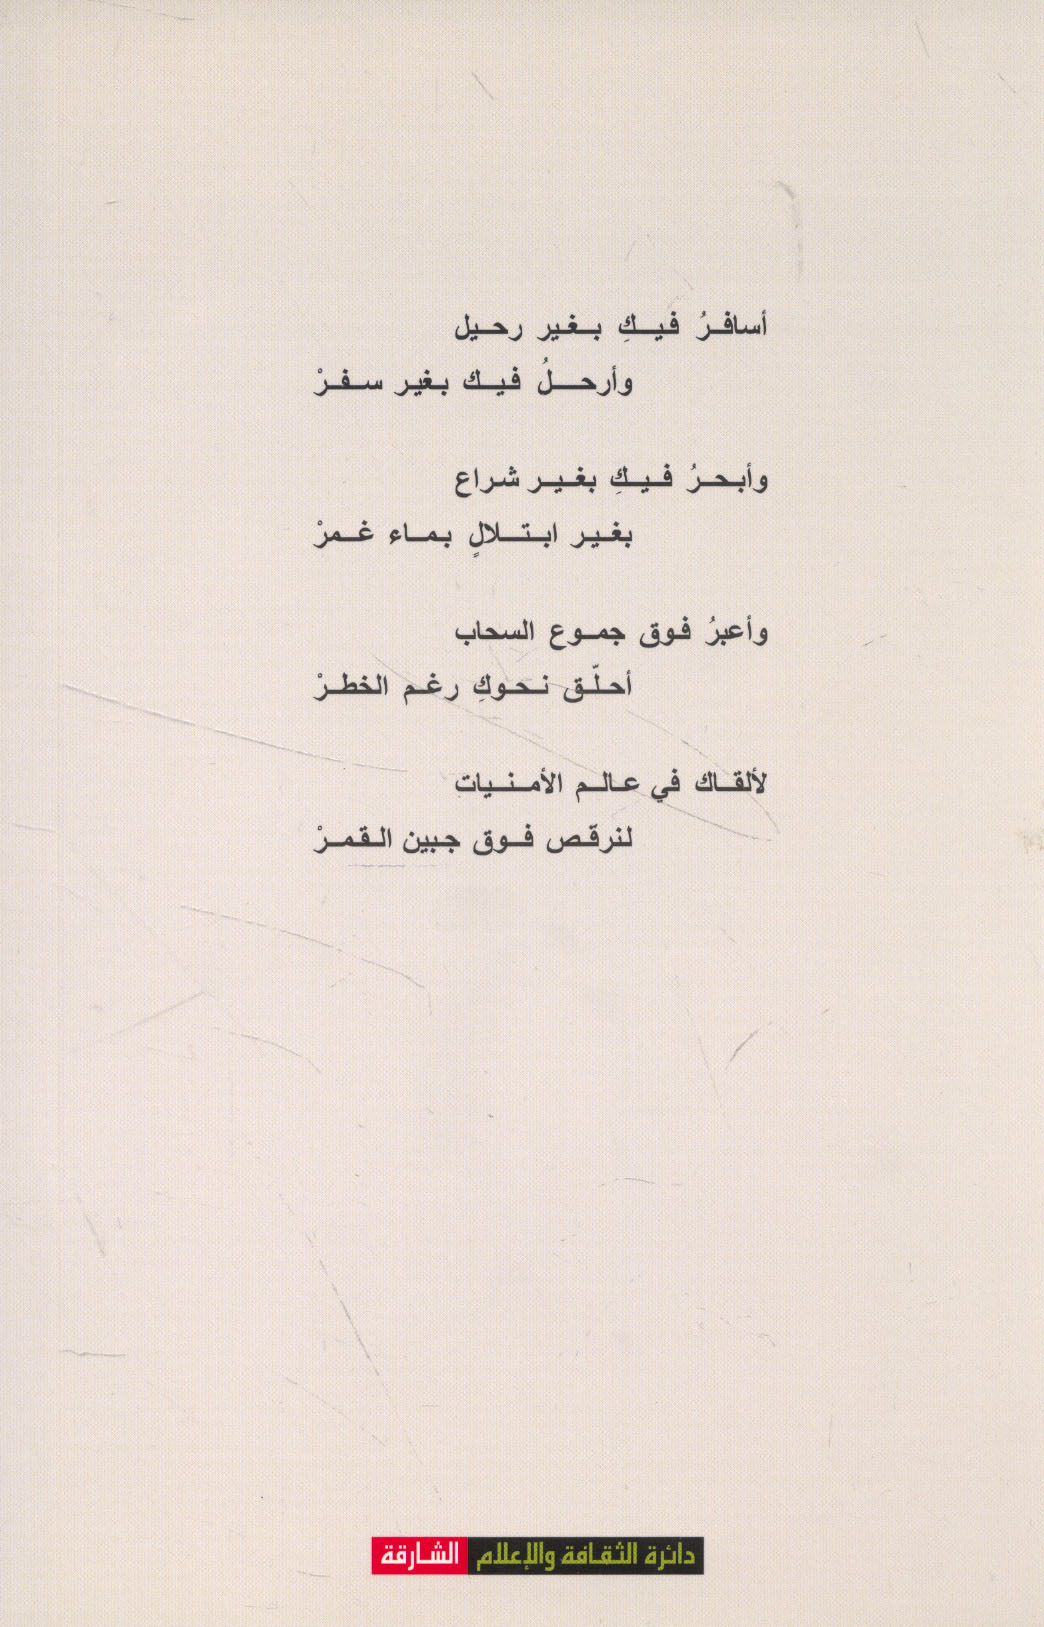 أسافرُ فيكِ بغير رحيل
وأرحلُ فيك بغير سفرْ
وأبحرُ فيكِ بغير شراع
بغير ابتلالٍ بماء غمرْ
وأعبرُ فوق جموع السحاب
أحلّق نحوكِ رغم الخطرْ
لألقاك في عالم الأمنيات
لنرقص فوق جبين القمرْ
دائرة الثقافة والإعلام الشارقة